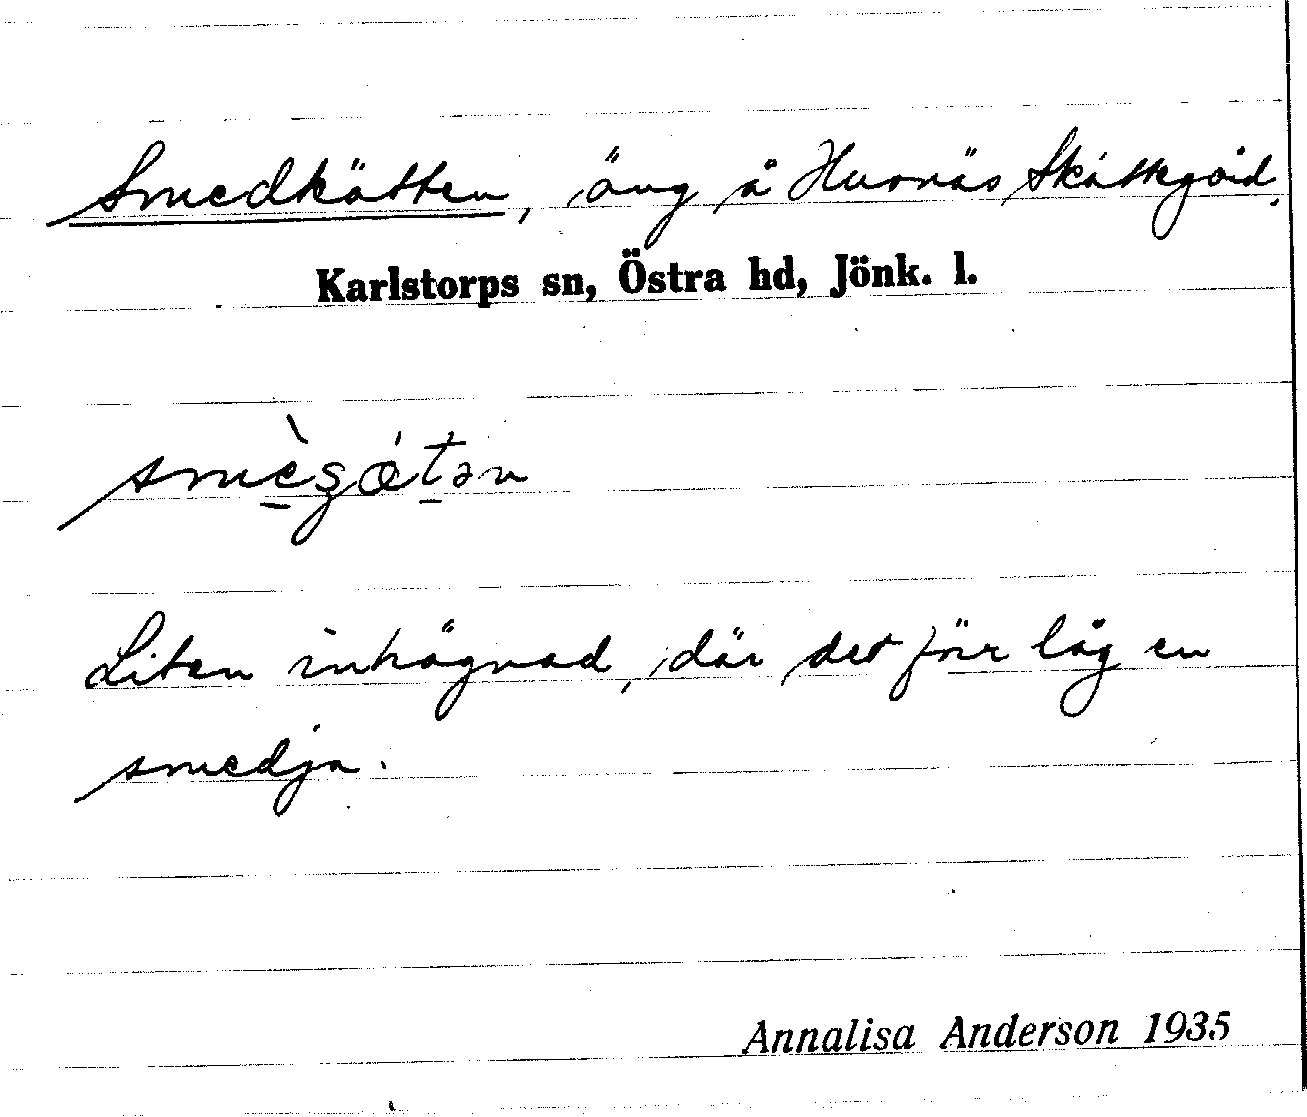 Smedkätten, äng å Huvnäs Skattegård.
Karlstorps sn, Östra hd, Jönk. l.
Liten inhägnad, där det förr låg en
smedja.
Annalisa Anderson 1935